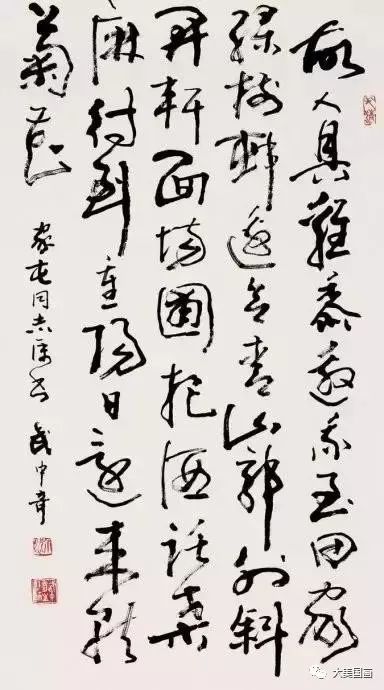 故人具雞黍邀我至田家
綠樹邨邊合青山郭外斜
開軒面場圃把酒話桑
麻待到重陽日還來就
菊花
家屯同志屬書 武中奇
大美国画